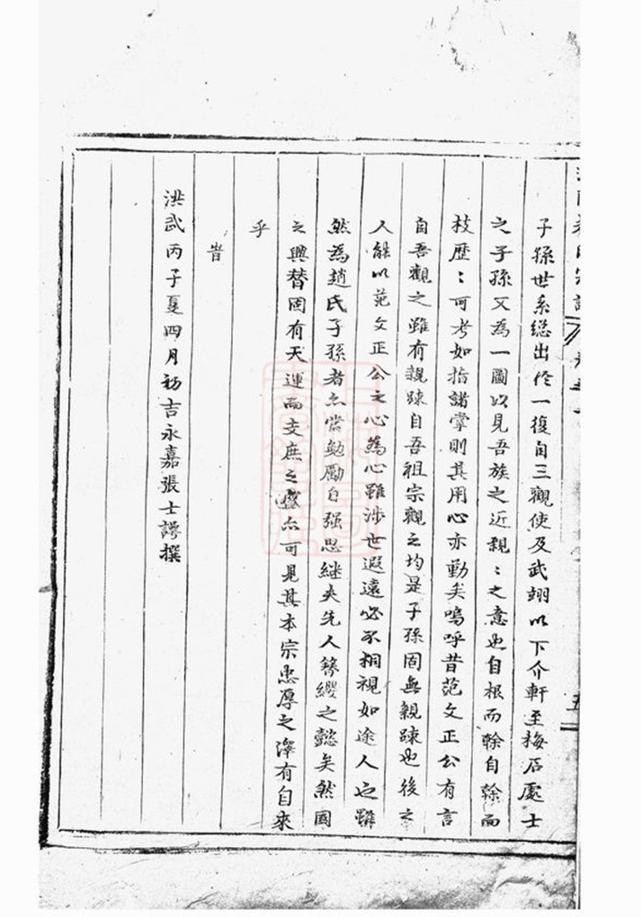 子孫世系緫出於一復自三觀使及武翊以下介軒至梅石處士
之子孫又為一圖以見吾族之近親〻之意也自根而榦自榦而
枝歷〻可考如指諸掌則其用心亦勤矣嗚呼昔范文正公有言
自吾觀之雖有親踈自吾祖宗觀之均是子孫固無親踈也後之
人能以范文正公之心為心雖涉世遐遠必不相視如途人也雖
然為趙氏子孫者亦當勉勵自强思繼夫先人簪纓之懿矣然國
之興替固有天運而支庶之盛亦可見其本宗忠厚之澤有自來
乎
旹
洪武丙子夏四月初吉永嘉張士諤撰